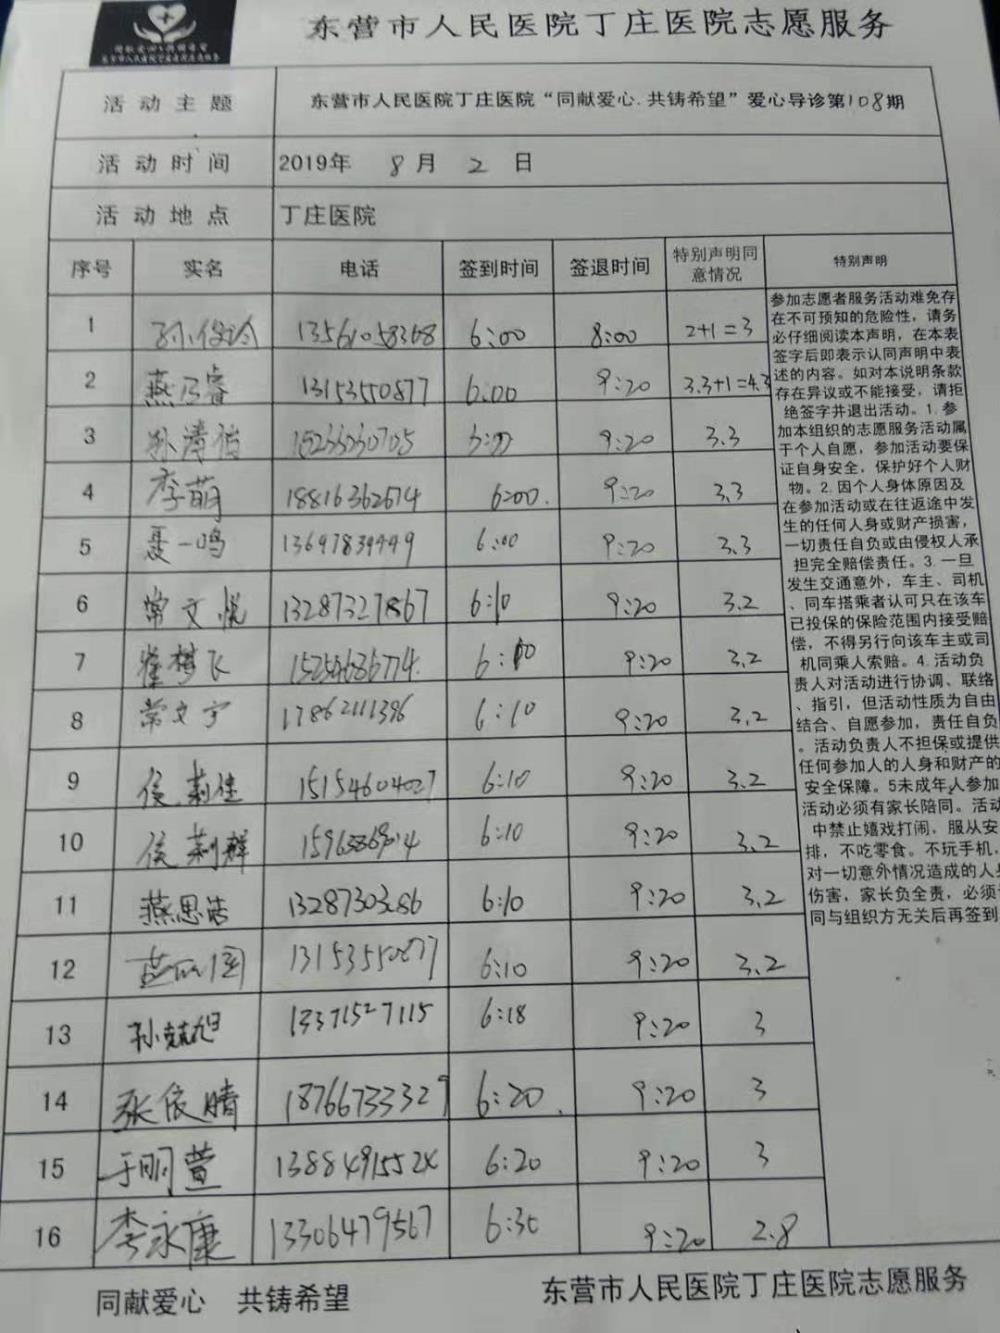 同献爱心 共铸希望
东营市人民医院丁庄医院志愿服务
东营市人民医院丁庄医院志愿服务
活动主题 东营市人民医院丁庄医院“同献爱心.共铸希望”爱心导诊第108期
活动时间 2019年 8月 2 日
活动地点 丁庄医院
序号 实名 电话 签到时间 签退时间 特别声明同意情况 特别声明
1 13561058368 6:00 8:00 2+1=3
2 燕乃睿 13153550877 6:00 9:20 3.3+1=4.3
3 9:20 3.3
4 李萌 18816362674 6:00. 9:20 3.3
5 聂一鸣 13697839449 6:00 9:20 3.3
6 常文悦 13287327867 6:10 9:20 3.2
7 崔梦飞 15254686774. 6:10 9:20 3.2
8 常文宇 17862111396 6:10 9:20 3.2
9 侯荆佳 15154604027 6:10 9:20 3.2
10 侯荆辉 6:10 9:20 3.2
11 燕思洁 13287303686 6:10 9:20 3.2
12 13153550877 6:10 9:20 3.2
13 孙兢旭 13371527115 6:18 9:20 3
14 张依晴 18766733329 6:20. 9:20 3
15 于明萱 13884915524 6:20 9:20 3
16 李永康 13306479567 6:30 9:20 2.8
参加志愿者服务活动难免存
在不可预知的危险性，请务
必仔细阅读本声明，在本表
签字后即表示认同声明中表
述的内容。如对本说明条款
存在异议或不能接受，请拒
绝签字并退出活动。1. 参
加本组织的志愿服务活动属
于个人自愿，参加活动要保
证自身安全，保护好个人财
物。2. 因个人身体原因及
在参加活动或在往返途中发
生的任何人身或财产损害，
一切责任自负或由侵权人承
担完全赔偿责任。3. 一旦
发生交通意外，车主、司机
、同车搭乘者认可只在该车
已投保的保险范围内接受赔
偿，不得另行向该车主或司
机同乘人索赔。4. 活动负
责人对活动进行协调、联络
、指引，但活动性质为自由
结合、自愿参加，责任自负
。活动负责人不担保或提供
任何参加人的人身和财产的
安全保障。5未成年人参加
活动必须有家长陪同。活动
中禁止嬉戏打闹，服从安
排，不吃零食。不玩手机，
对一切意外情况造成的人身
伤害，家长负全责，必须
同与组织方无关后再签到
同献爱心 共铸希望 东营市人民医院丁庄医院志愿服务